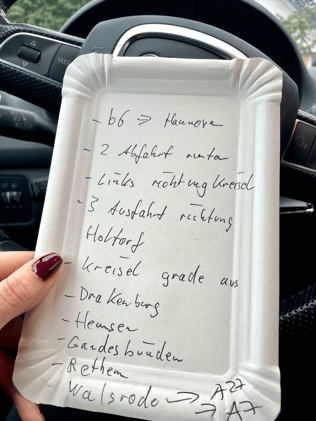 - b6 → Hannove
- 2 Abfahrt runter
- Links richtung Kreisel
- 3 Ausfahrt richtung
Holtorf
- Kreisel grade aus
- Drakenburg
- Hemsen
- Gandesbünden
- Rethem
- Walsrode → A27
→ A7